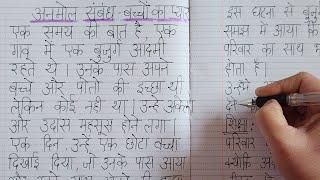 अनमोल संबंध - बच्चों का प्यार
एक समय की बात है, एक
गाव में एक बुजुर्ग आदमी
रहते थे। उनके पास अपने
बच्चे और पोतों की इच्छा थी
लेकिन कोई नही था। उन्हे अकेला
और उदास महसूस होने लगा
एक दिन, उन्हें एक छोटा बच्चा
दिखाई दिया, जो उनके पास आया
इस घटना से बुजुर्ग
समझ में आया कि
परिवार का साथ
होता है।
उन्होंने
शिक्षा:
परिवार
क्योंकि